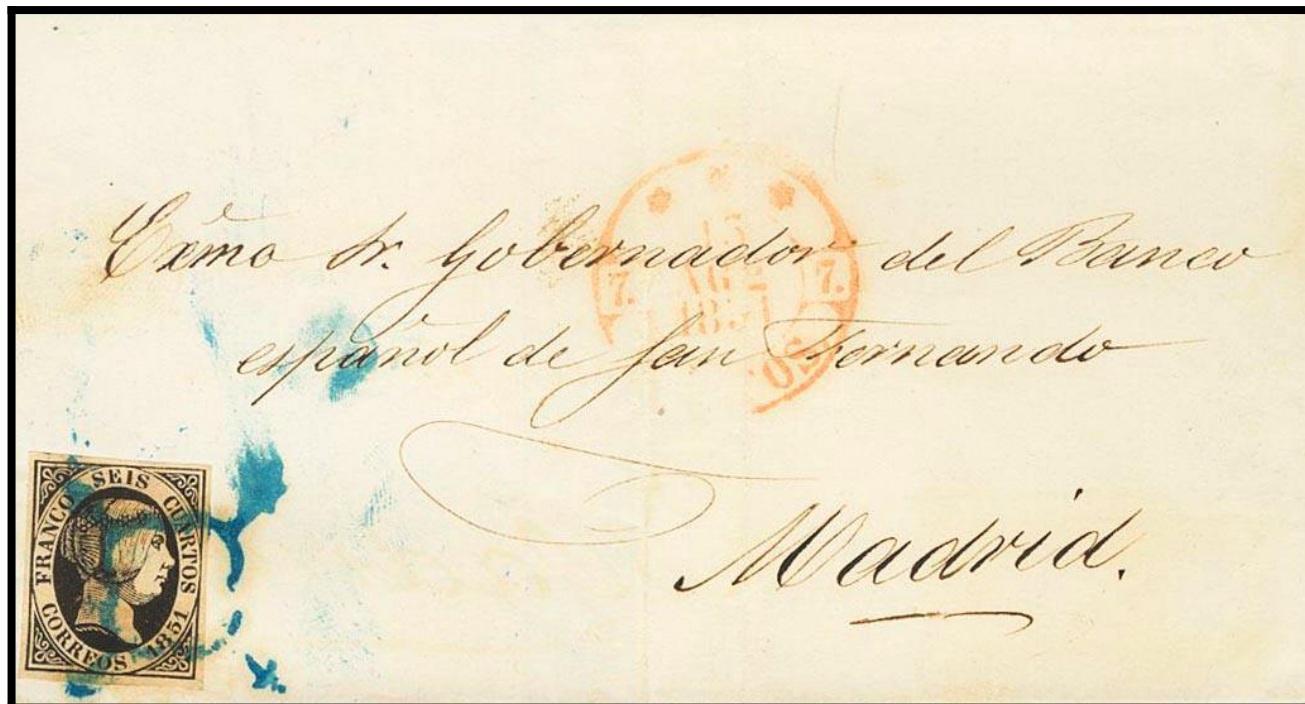 Exmo Sr. Gobernador del Banco
español de San Fernando
Madrid.
15
7. AG 7.
1851
FRANCO SEIS CUARTOS
CORREOS 1851